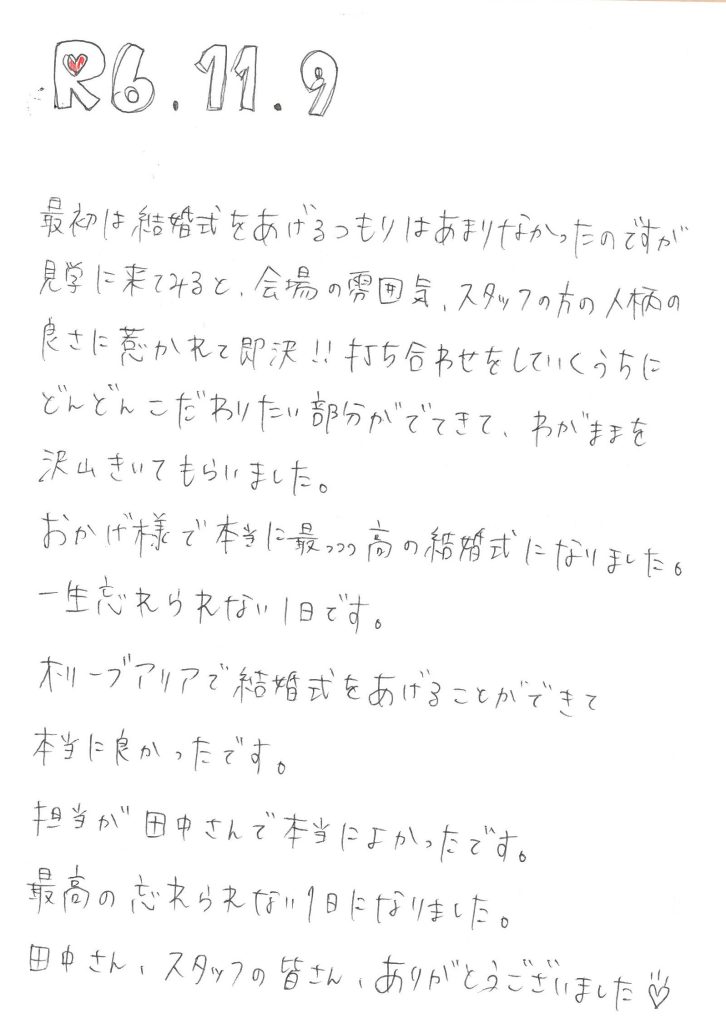 R6.11.9
最初は結婚式をあげるつもりはあまりなかったのですが
見学に来てみると、会場の雰囲気、スタッフの方の人柄の
良さに惹かれて即決!!打ち合わせをしていくうちに
どんどんこだわりたい部分がでてきて、わがままを
沢山きいてもらいました。
おかげ様で本当に最っっっ高の結婚式になりました。
一生忘れられない1日です。
オリーブアリアで結婚式をあげることができて
本当に良かったです。
担当が田中さんで本当によかったです。
最高の忘れられない1日になりました。
田中さん、スタッフの皆さん、ありがとうございました♡